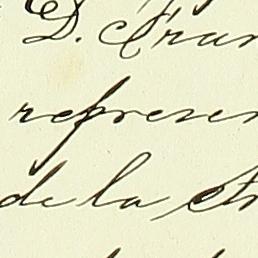 D. Fran
represen
de la